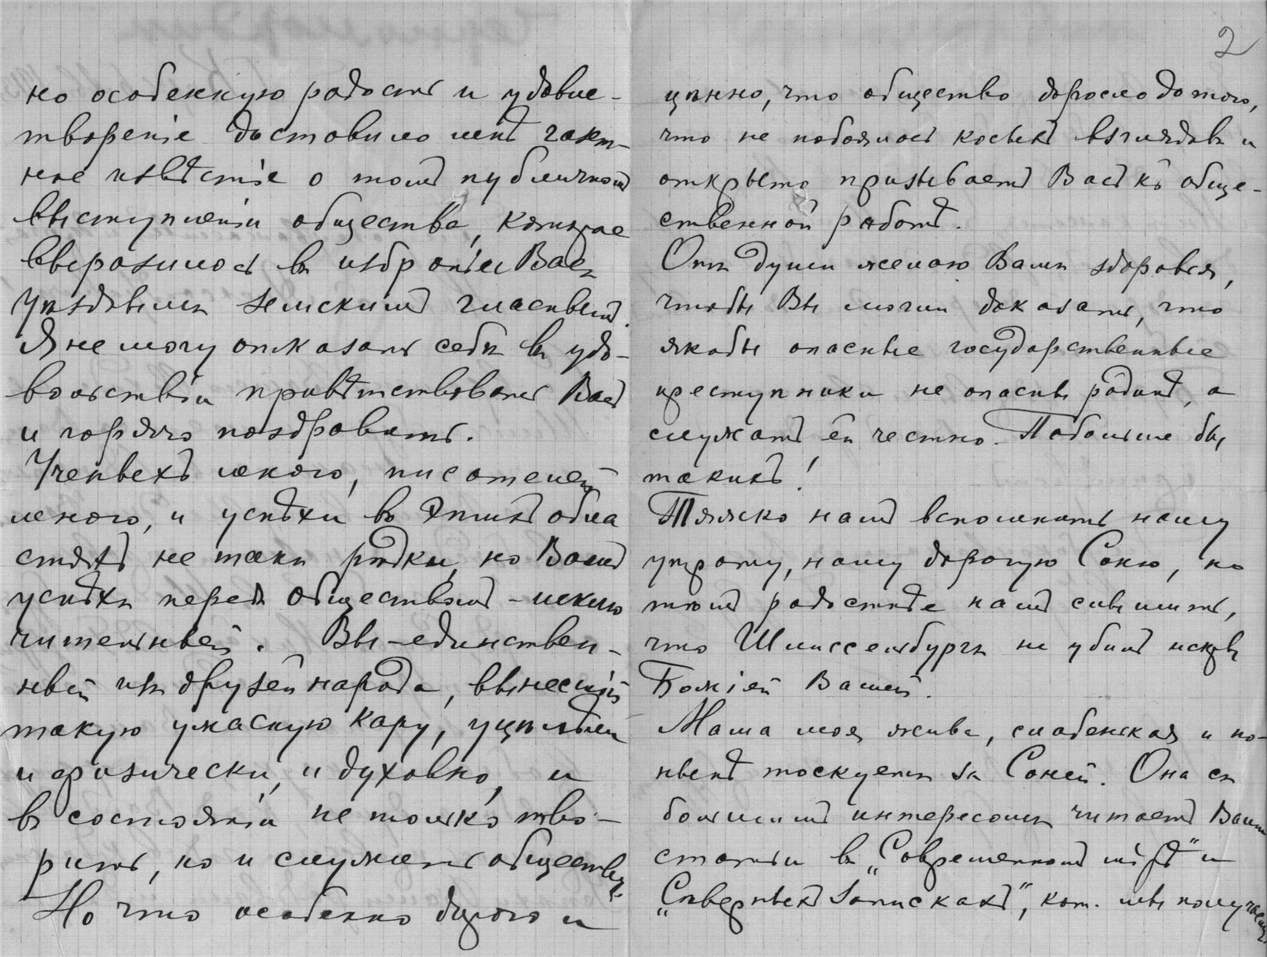 но особенную радость и удовле-
творенiе доставило мнѣ газет-
ное извѣстiе о томъ публичномъ
выступленiи общества, которое
выразилось въ избранiи Васъ
уѣзднымъ земскимъ гласнымъ.
Я не могу отказать себѣ въ удо-
вольствiи привѣтствовать Васъ
и горячо поздравить.
Ученыхъ много, писателей
много, и успѣхи въ этихъ обла
стяхъ не такъ рѣдки, но Вашъ
успѣхъ передъ обществомъ – исклю
чительный. Вы – единствен-
ный изъ друзей народа, вынесшiй
такую ужасную кару, уцѣлѣлъ
и физически, и духовно, и
въ состоянiи не только тво-
рить, но и служить обществу.
Но что особенно дорого и
2
цѣнно, что общество доросло до того,
что не побоялось косыхъ взглядовъ и
открыто призываетъ Васъ къ обще-
ственной работѣ.
Отъ души желаю Вамъ здоровья,
чтобы Вы могли доказать, что
якобы опасные государственные
преступники не опасны родинѣ, а
служатъ ей честно. Побольше бы
такихъ!
Тяжко намъ вспоминать нашу
утрату, нашу дорогую Соню, но
тѣмъ радостнѣе намъ слышать,
что Шлиссельбургъ не убилъ искры
Божiей Вашей.
Мама моя жива, слабенькая и по-
нынѣ тоскуетъ за Соней. Она съ
большимъ интересомъ читаетъ Ваши
статьи въ „Современномъ мiрѣ“ и
„Сѣверныхъ Запискахъ“, кот. мы получаемъ